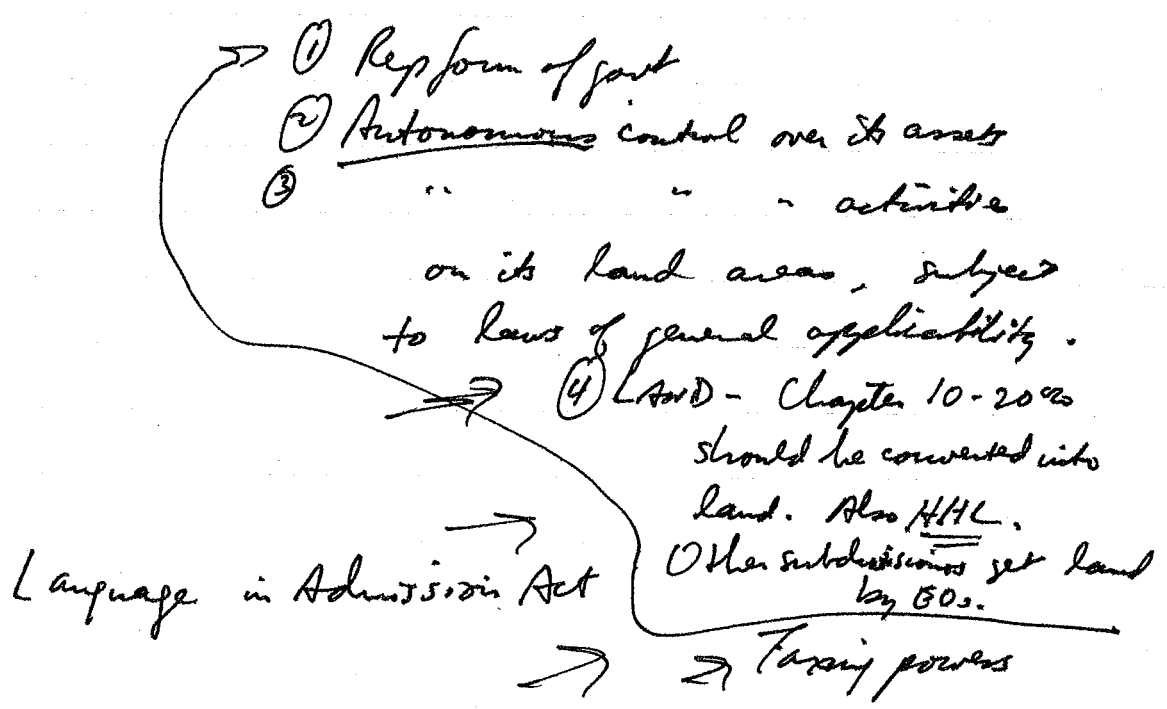 ① Rep form of govt
② Autonomous control over its assets
③ " " " activities
on its land areas, subject
to laws of general applicability.
④ LAND - Chapter 10 - 20%
should be converted into
land. Also HHL.
Other subdivisions get land
by EOs.
Language in Admission Act
Taxing powers